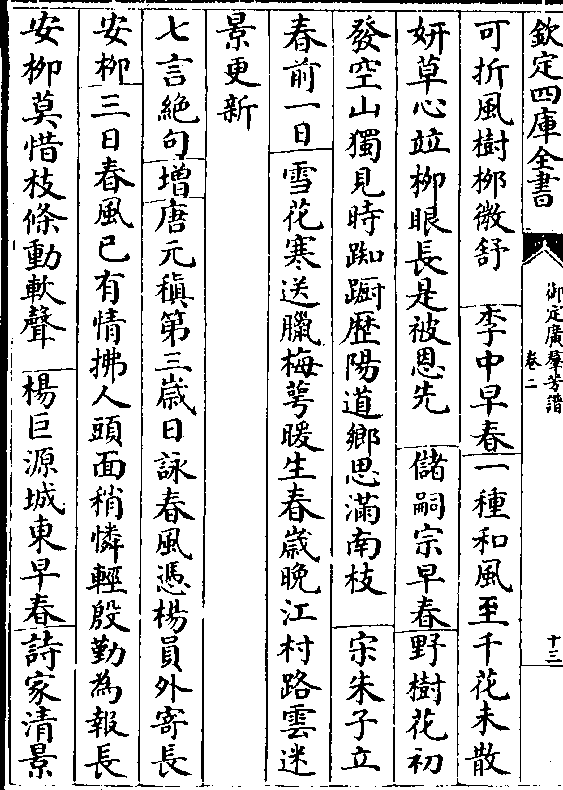 欽定四庫全書
御定廣羣芳譜
卷二
十三
可折風樹栁微舒　李中早春一種和風至千花未散
妍草心竝栁眼長是被恩先　儲嗣宗早春野樹花初
發空山獨見時踟蹰歴陽道鄉思滿南枝　宋朱子立
春前一日雪花寒送臘梅萼暖生春嵗晚江村路雲迷
景更新
七言絶句增唐元稹第三嵗日詠春風憑楊員外寄長
安栁三日春風已有情拂人頭面稍憐輕殷勤為報長
安栁莫惜枝條動軟聲　楊巨源城東早春詩家清景